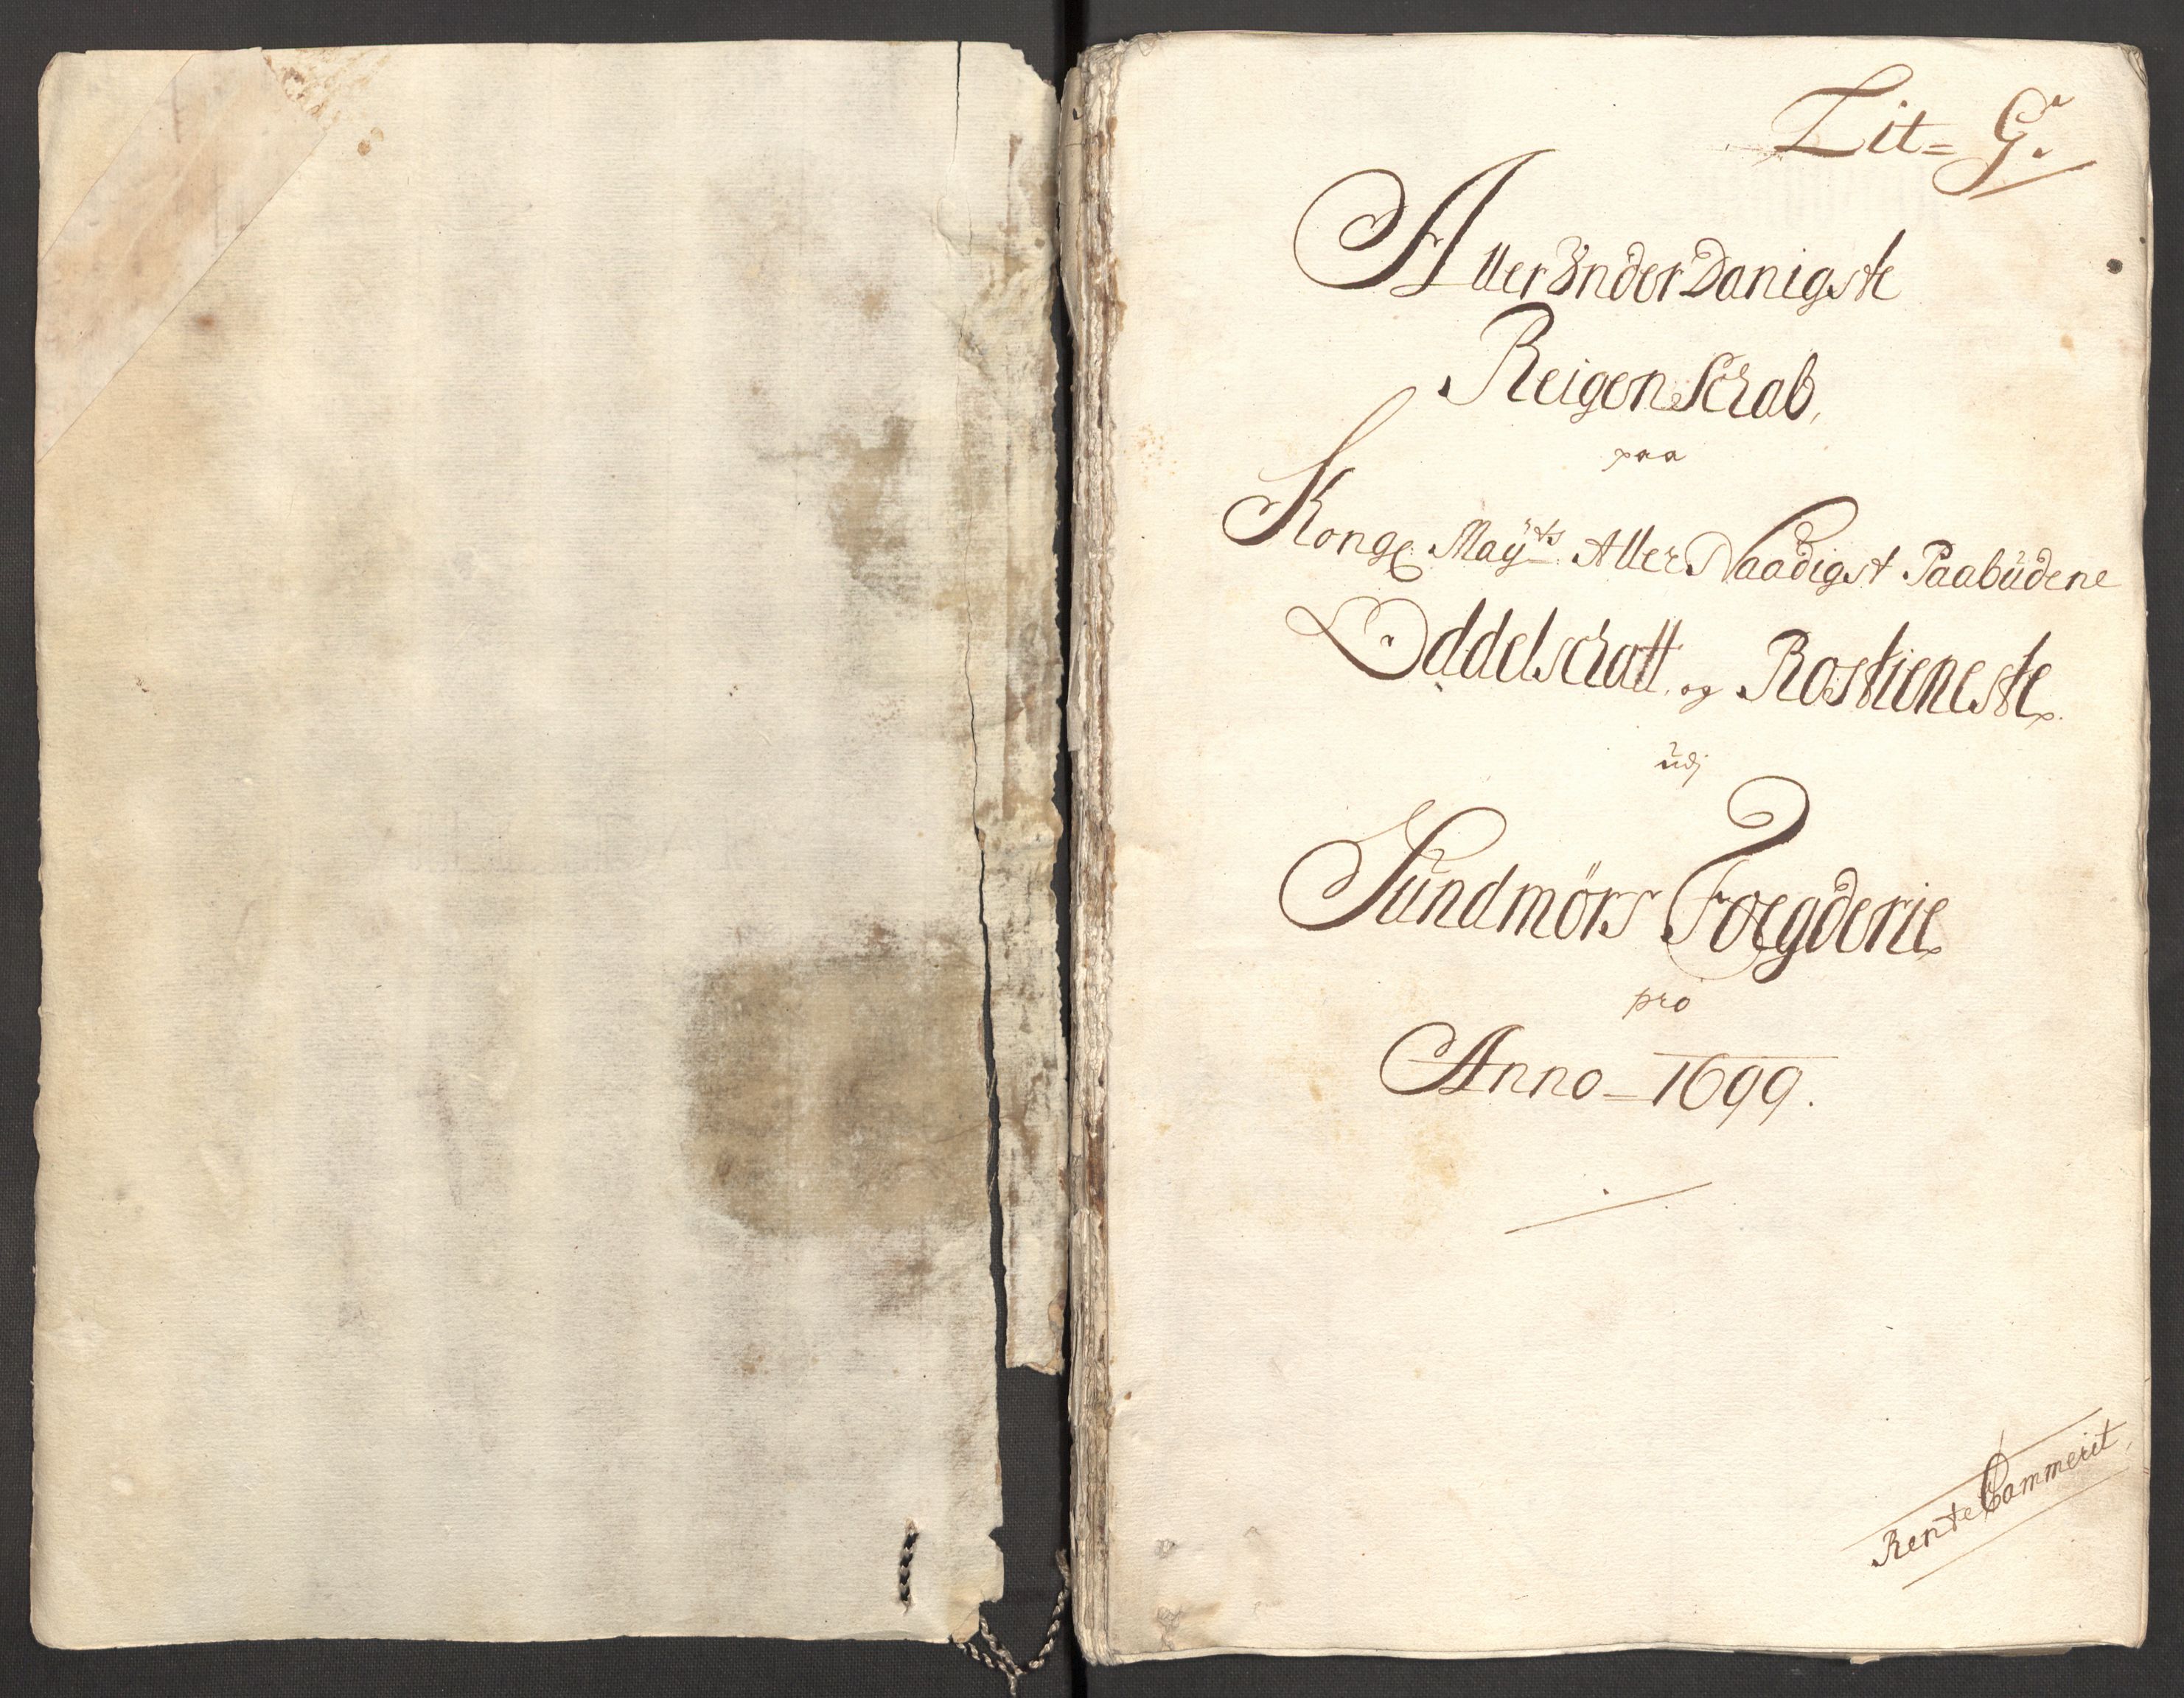 Lit= G.
Aller Under Danigste
Reigenschab,
paa
Kongl. Mayts Aller Naadigst Paabüdene
Oddelschatt, og Rostieneste
üdj
Sündmörs Foegderie
pro
Anno = 1699.
Rente Cammerit,